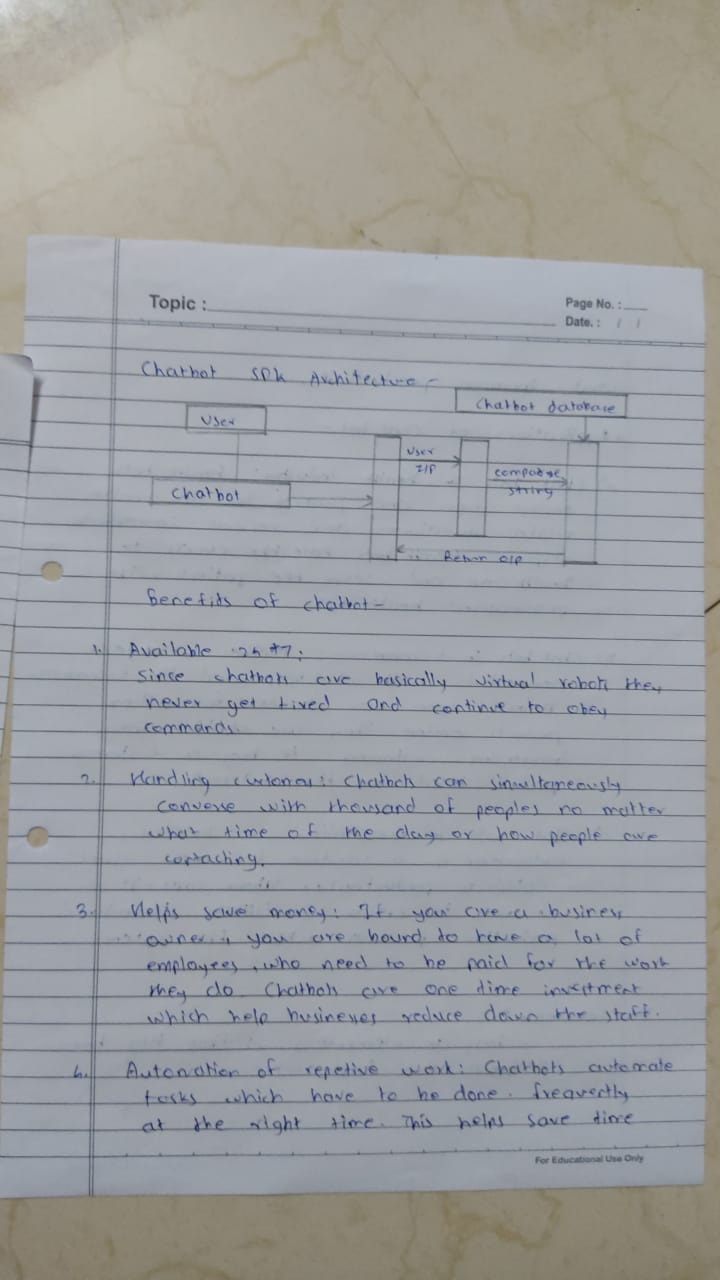 Topic :
Page No. :
Date. : / /
Chatbot SDK Architecture -
Chatbot database
User
User
I/P
compare
string
Chatbot
Return O/P
Benefits of chatbot -
1. Available 24*7:
Since chatbots are basically virtual robots they
never get tired and continue to obey
commands.
2. Handling customers: Chatbots can simultaneously
converse with thousand of peoples no matter
what time of the day or how people are
contacting.
3. Helps save money: If you are a business
owner, you are bound to have a lot of
employees, who need to be paid for the work
they do. Chatbots are one time investment
which help businesses reduce down the staff.
4. Automation of repetive work: Chatbots automate
tasks which have to be done frequently
at the right time. This helps save time
For Educational Use Only